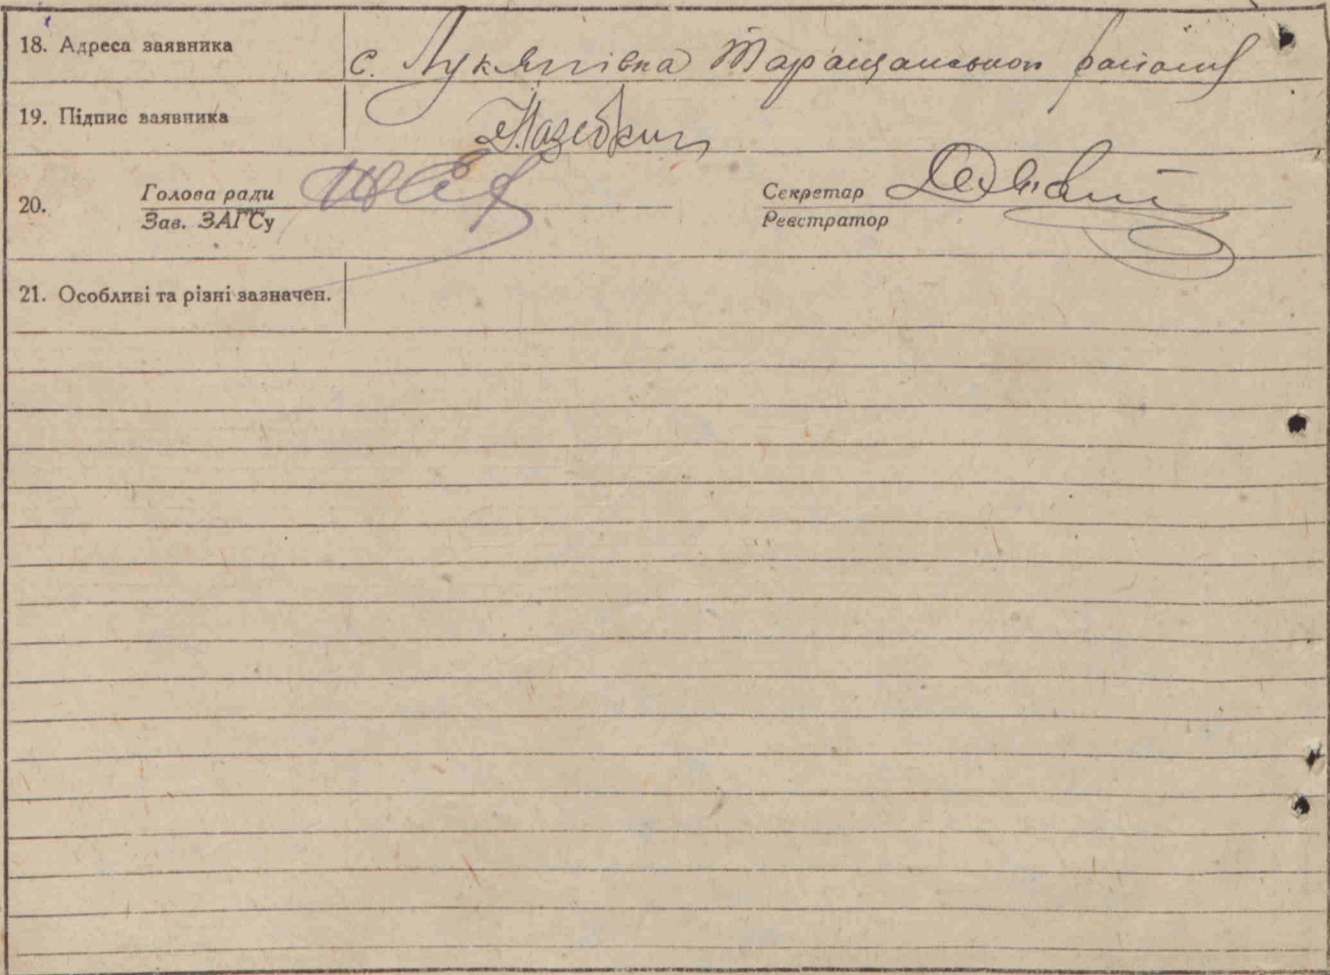 18. Адреса заявника с. Лукянівка Таращанського району
19. Підпис заявника
20. Голова ради Секретар
Зав. ЗАГСу Реєстратор
21. Особливі та різні зазначен.